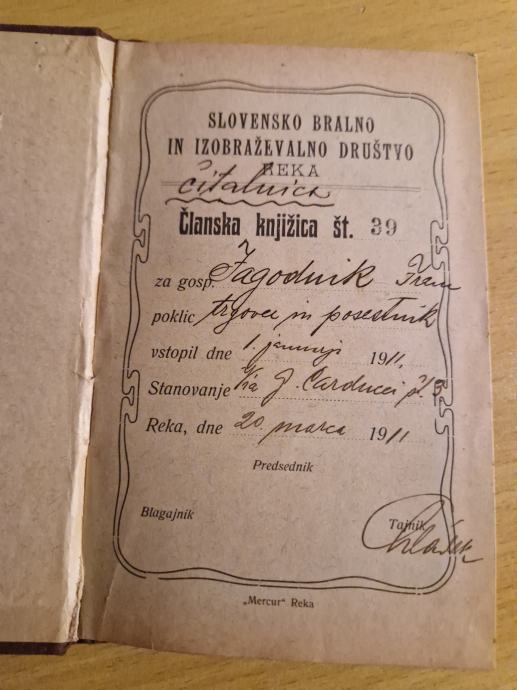 SLOVENSKO BRALNO
IN IZOBRAŽEVALNO DRUŠTVO
REKA
Čitalnica
Članska knjižica št. 39
za gosp. Jagodnik Fran
poklic trgovec in posestnik
vstopil dne 1. januarji 1911.
Stanovanje Via G. Carducci št. 3
Reka, dne 20. marca 1911
Predsednik
Blagajnik
Tajnik
„Mercur“ Reka